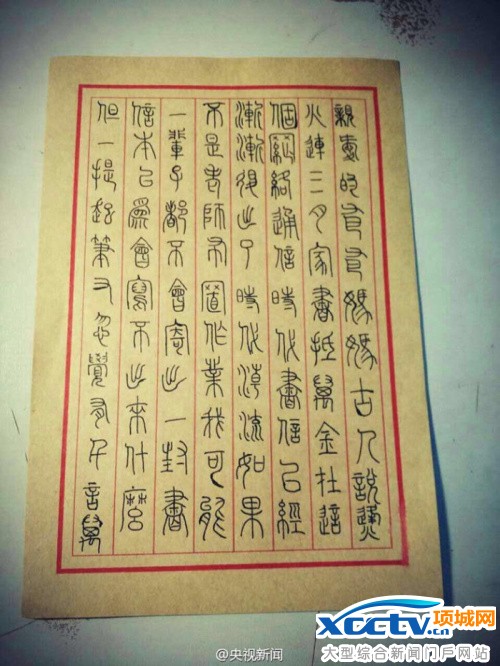 親愛的爸爸媽媽古人說烽
火連三月家書抵萬金在這
個網絡通信時代書信已經
漸漸退出了時代潮流如果
不是老師布置作業我可能
一輩子都不會寄出一封書
信本以為會寫不出來什麼
但一提起筆又忽覺有千言萬
@央视新闻
xcctv.cn 项城网
大型综合新闻门户网站